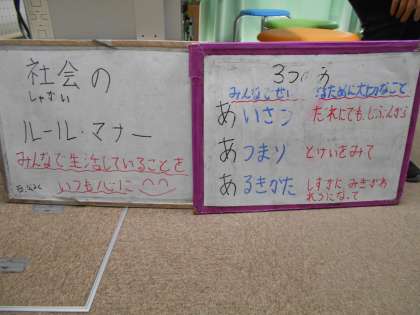 社会の
しゃかい
ルール・マナー
みんなで生活していることを
いつも心に
3つ
みんなで ために大切なこと
あいさつ だれにでも じぶんから
あつまり とけいをみて
あるきかた しずかに みぎがわ